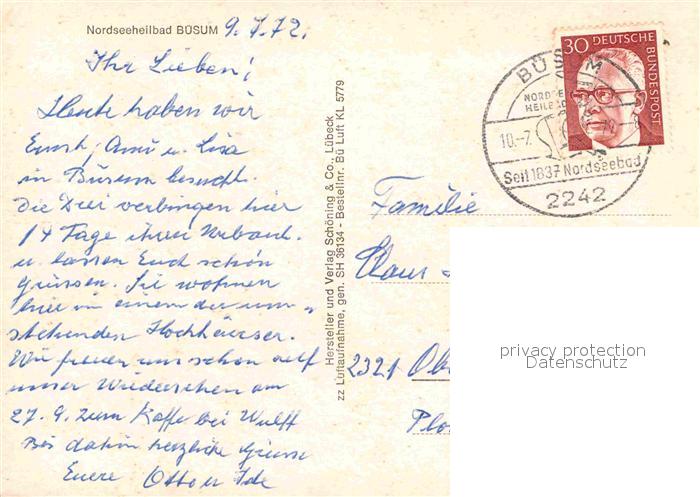 Nordseeheilbad BÜSUM 9.7.72.
Ihr Lieben!
Heute haben wir
Ernst, Anni u. Lisa
in Büsum besucht.
Die Drei verbingen hier
14 Tage ihren Urlaub.
u. lassen Euch schön
grüssen. Sie wohnen
hier in einem der um-
stehenden Hochhäuser.
Wir freuen uns schon auf
unser Wiedersehen am
27. 9. zum Kaffe bei Wulff
Bis dahin herzliche Grüsse
Euere Otto u Ide
Hersteller und Verlag Schöning & Co., Lübeck
zz Luftaufnahme, gen. SH 36134 - Bestellnr. Bü Luft KL 5779
30 DEUTSCHE
BUNDESPOST
BÜSUM
10.-7.
Seit 1837 Nordseebad
2242
Familie
Claus
2321
privacy protection
Datenschutz